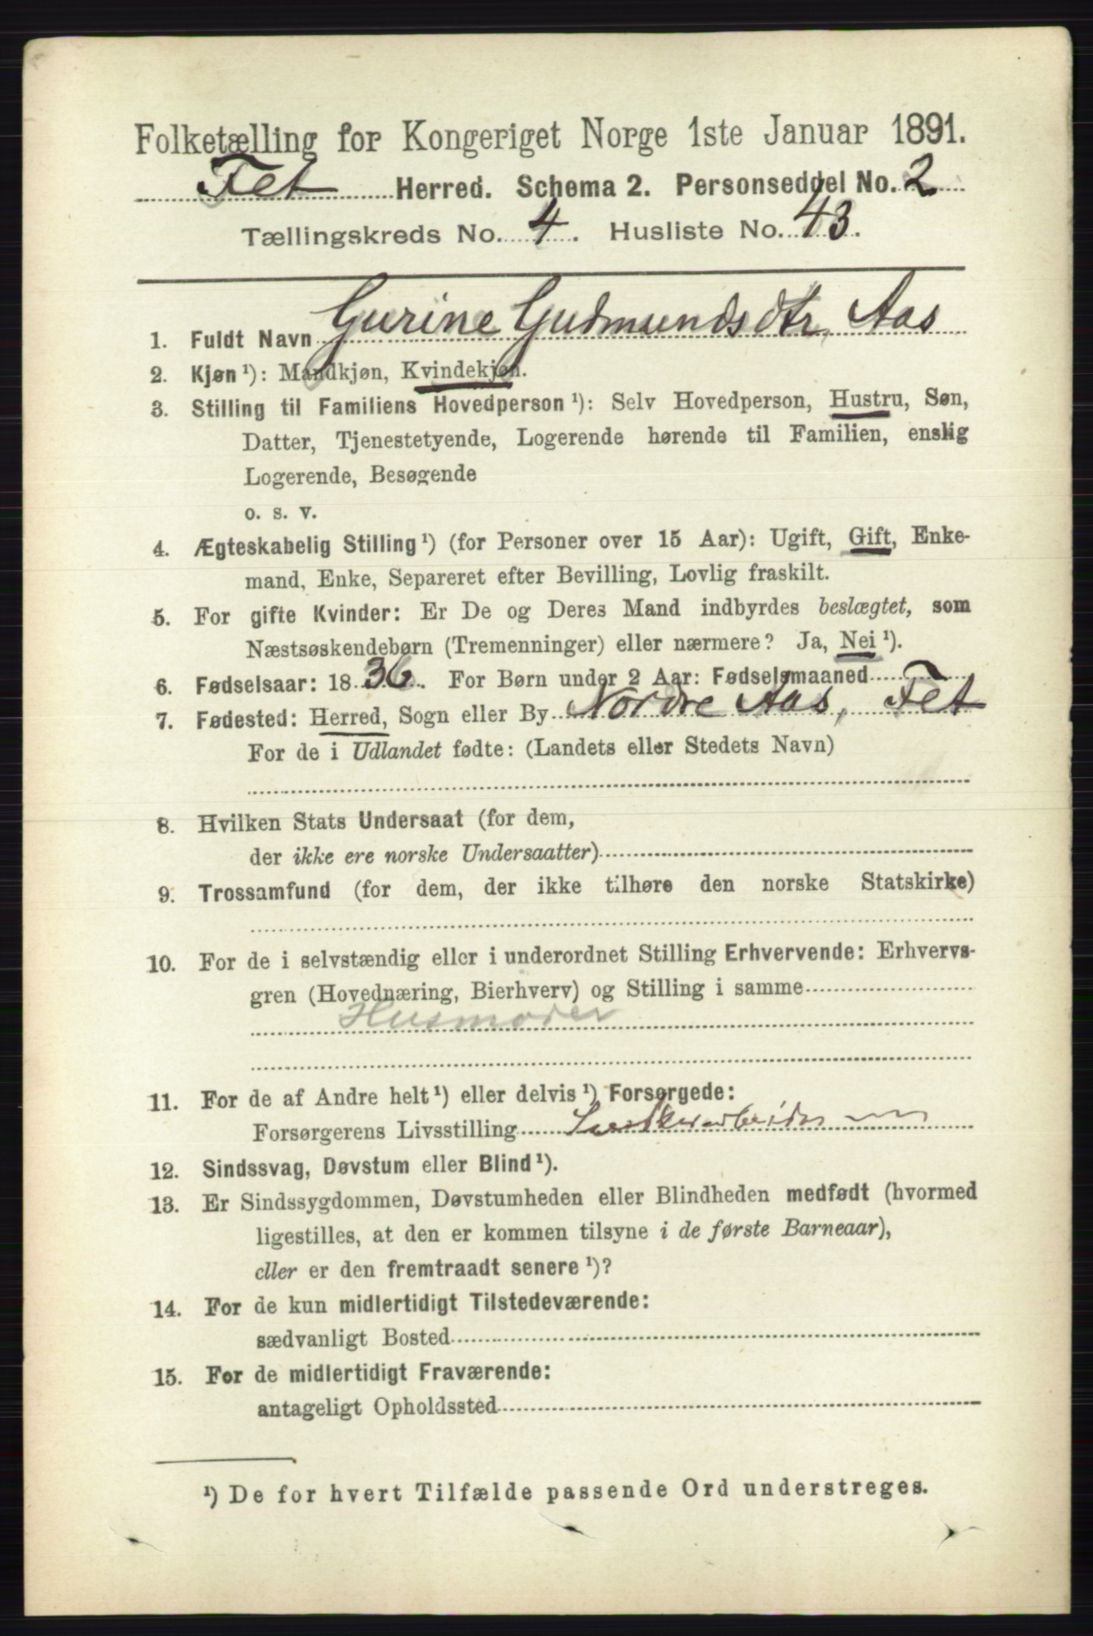 Folketælling for Kongeriget Norge 1ste Januar 1891.
Fet Herred. Schema 2. Personseddel No. 2
Tællingskreds No. 4. Husliste No. 43.
1. Fuldt Navn Gurine Gudmundsdtr, Aas
2. Kjøn ¹): Mandkjøn, Kvindekjøn.
3. Stilling til Familiens Hovedperson ¹): Selv Hovedperson, Hustru, Søn,
Datter, Tjenestetyende, Logerende hørende til Familien, enslig
Logerende, Besøgende
o. s. v.
4. Ægteskabelig Stilling ¹) (for Personer over 15 Aar): Ugift, Gift, Enke-
mand, Enke, Separeret efter Bevilling, Lovlig fraskilt.
5. For gifte Kvinder: Er De og Deres Mand indbyrdes beslægtet, som
Næstsøskendebørn (Tremenninger) eller nærmere? Ja, Nei ¹).
6. Fødselsaar: 1836. For Børn under 2 Aar: Fødselsmaaned
7. Fødested: Herred, Sogn eller By Nordre Aas, Fet
For de i Udlandet fødte: (Landets eller Stedets Navn)
8. Hvilken Stats Undersaat (for dem,
der ikke ere norske Undersaatter)
9. Trossamfund (for dem, der ikke tilhøre den norske Statskirke)
10. For de i selvstændig eller i underordnet Stilling Erhvervende: Erhvervs-
gren (Hovednæring, Bierhverv) og Stilling i samme
Husmoder
11. For de af Andre helt ¹) eller delvis ¹) Forsørgede:
Forsørgerens Livsstilling
12. Sindssvag, Døvstum eller Blind ¹).
13. Er Sindssygdommen, Døvstumheden eller Blindheden medfødt (hvormed
ligestilles, at den er kommen tilsyne i de første Barneaar),
eller er den fremtraadt senere ¹)?
14. For de kun midlertidigt Tilstedeværende:
sædvanligt Bosted
15. For de midlertidigt Fraværende:
antageligt Opholdssted
¹) De for hvert Tilfælde passende Ord understreges.